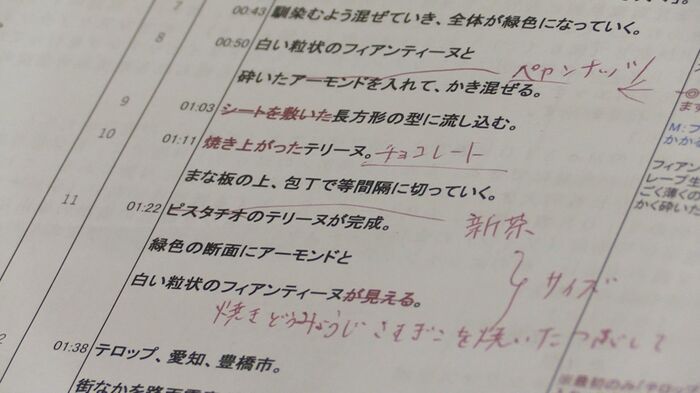 7 00:43 馴染むよう混ぜていき、全体が緑色になっていく。
8 00:50 白い粒状のフィアンティーヌと
砕いたアーモンドを入れて、かき混ぜる。
9 01:03 シートを敷いた長方形の型に流し込む。
10 01:11 焼き上がったテリーヌ。チョコレート
まな板の上、包丁で等間隔に切っていく。
11 01:22 ピスタチオのテリーヌが完成。
新茶
緑色の断面にアーモンドと
白い粒状のフィアンティーヌが見える。
サイズ
焼き
を焼いた
01:38 テロップ、愛知、豊橋市。
街なかを路面電
ます
M:フ
かかる
フィアン
レープ生
ごく薄くの
かく砕いた
※最初のみ「テロップ